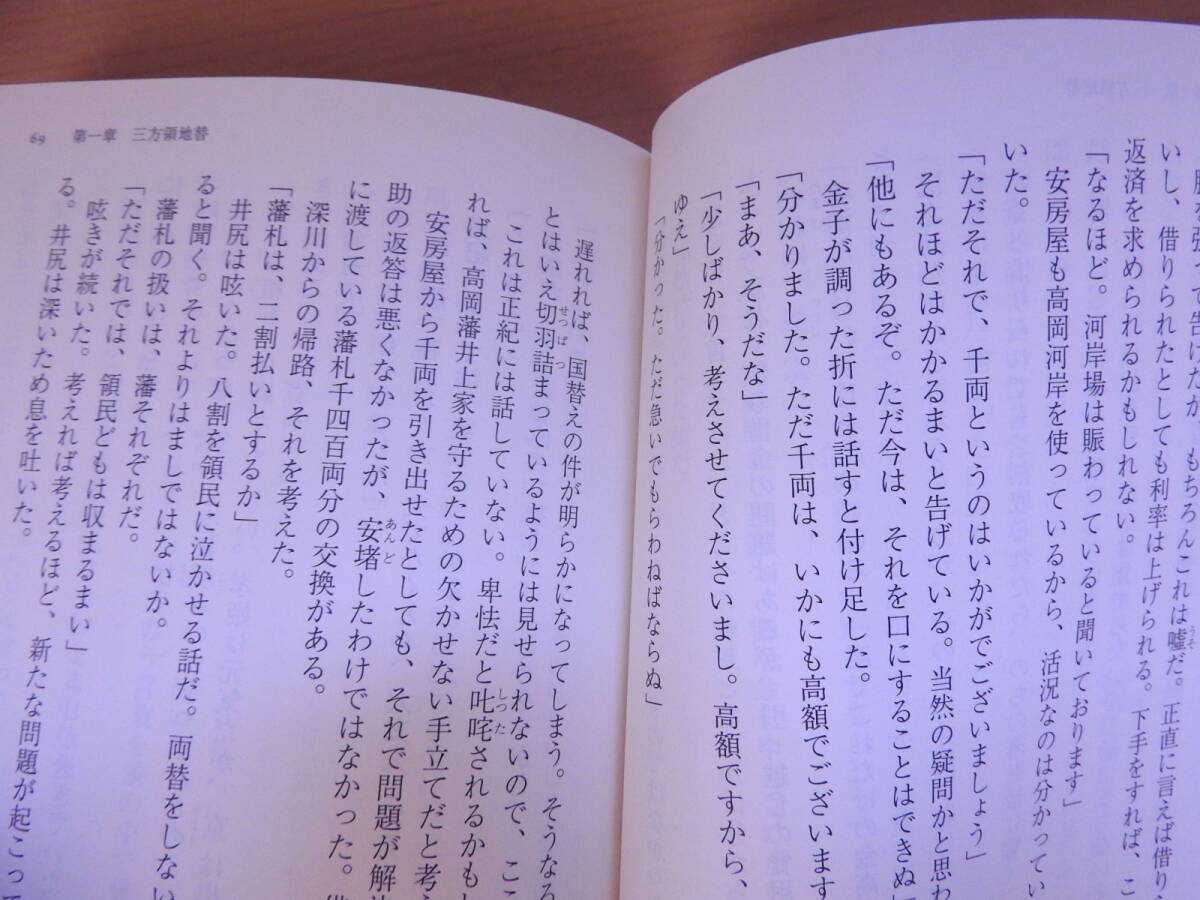 腰を張って告げたが、もちろんこれは嘘だ。正直に言えば借り
いし、借りられたとしても利率は上げられる。下手をすれば、こ
返済を求められるかもしれない。
「なるほど。河岸場は賑わっていると聞いております」
安房屋も高岡河岸を使っているから、活況なのは分かってい
いた。
「ただそれで、千両というのはいかがでございましょう」
それほどはかかるまいと告げている。当然の疑問かと思わ
「他にもあるぞ。ただ今は、それを口にすることはできぬ」
金子が調った折には話すと付け足した。
「分かりました。ただ千両は、いかにも高額でございます
「まあ、そうだな」
「少しばかり、考えさせてくださいまし。高額ですから、
ゆえ」
「分かった。ただ急いでもらわねばならぬ」
69 第一章 三方領地替
遅れれば、国替えの件が明らかになってしまう。そうなる
とはいえ切羽詰まっているようには見せられないので、ここ
これは正紀には話していない。卑怯だと叱咤されるかもし
れば、高岡藩井上家を守るための欠かせない手立てだと考え
安房屋から千両を引き出せたとしても、それで問題が解決
助の返答は悪くなかったが、安堵したわけではなかった。借
に渡している藩札千四百両分の交換がある。
深川からの帰路、それを考えた。
「藩札は、二割払いとするか」
井尻は呟いた。八割を領民に泣かせる話だ。両替をしない
ると聞く。それよりはましではないか。
「藩札の扱いは、藩それぞれだ。
「ただそれでは、領民どもは収まるまい」
呟きが続いた。考えれば考えるほど、新たな問題が起こって
る。井尻は深いため息を吐いた。